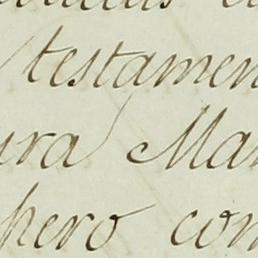 testamen
ura Mar
hero con